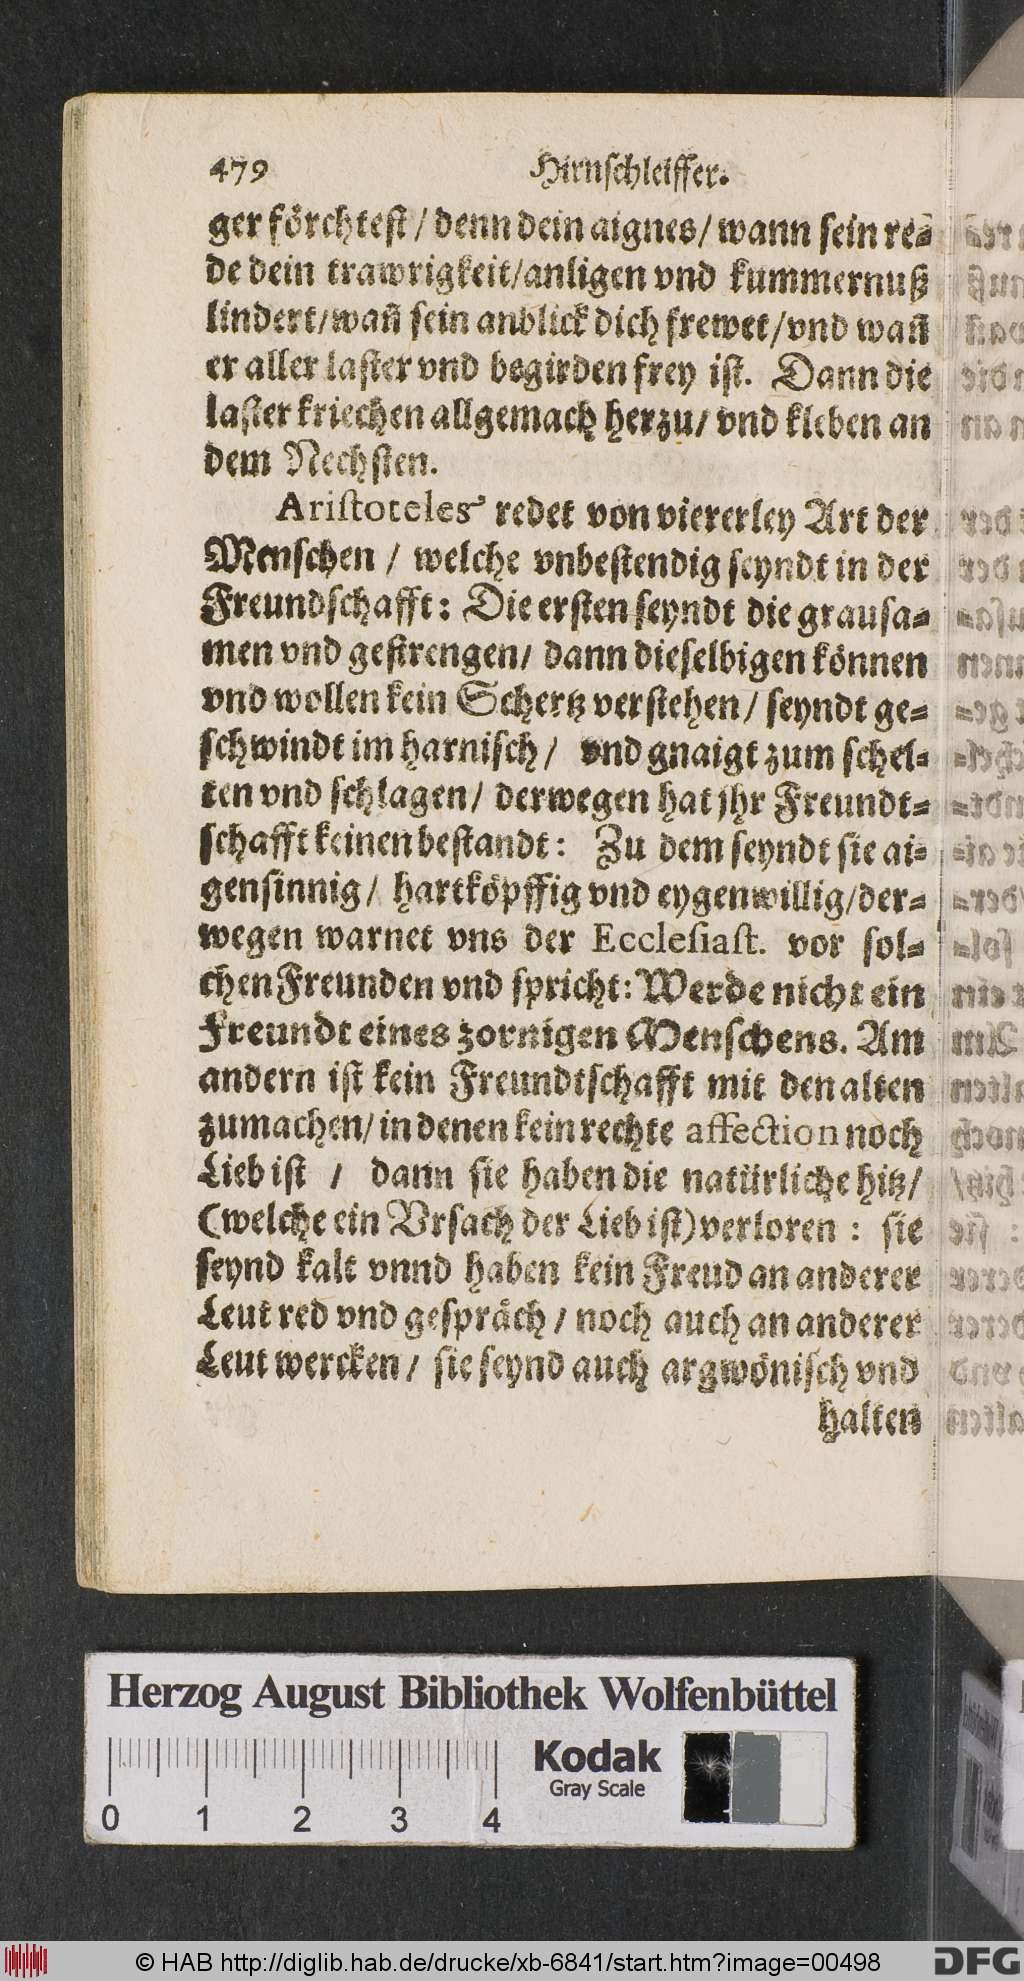 479 Hirnschleiffer.
ger förchtest / denn dein aignes / wann sein re⸗
de dein trawrigkeit/anligen vnd kummernuß
lindert/wañ sein anblick dich frewet/vnd wañ
er aller laster vnd begirden frey ist. Dann die
laster kriechen allgemach herzu/ vnd kleben an
dem Nechsten.
Aristoteles redet von viererley Art der
Menschen / welche vnbestendig seyndt in der
Freundschafft: Die ersten seyndt die grausa⸗
men vnd gestrengen/ dann dieselbigen können
vnd wollen kein Schertz verstehen/ seyndt ge⸗
schwindt im harnisch/ vnd gnaigt zum schel⸗
ten vnd schlagen/ derwegen hat jhr Freundt⸗
schafft keinen bestandt: Zu dem seyndt sie ai⸗
gensinnig/ hartköpffig vnd eygenwillig/der⸗
wegen warnet vns der Ecclesiast. vor sol⸗
chen Freunden vnd spricht: Werde nicht ein
Freundt eines zornigen Menschens. Am
andern ist kein Freundtschafft mit den alten
zumachen/ in denen kein rechte affection noch
Lieb ist / dann sie haben die natürliche hitz/
(welche ein Vrsach der Lieb ist) verloren : sie
seynd kalt vnnd haben kein Freud an anderer
Leut red vnd gespräch / noch auch an anderer
Leut wercken / sie seynd auch argwönisch vnd
halten
Herzog August Bibliothek Wolfenbüttel
0 1 2 3 4
Kodak
Gray Scale
© HAB http://diglib.hab.de/drucke/xb-6841/start.htm?image=00498
DFG